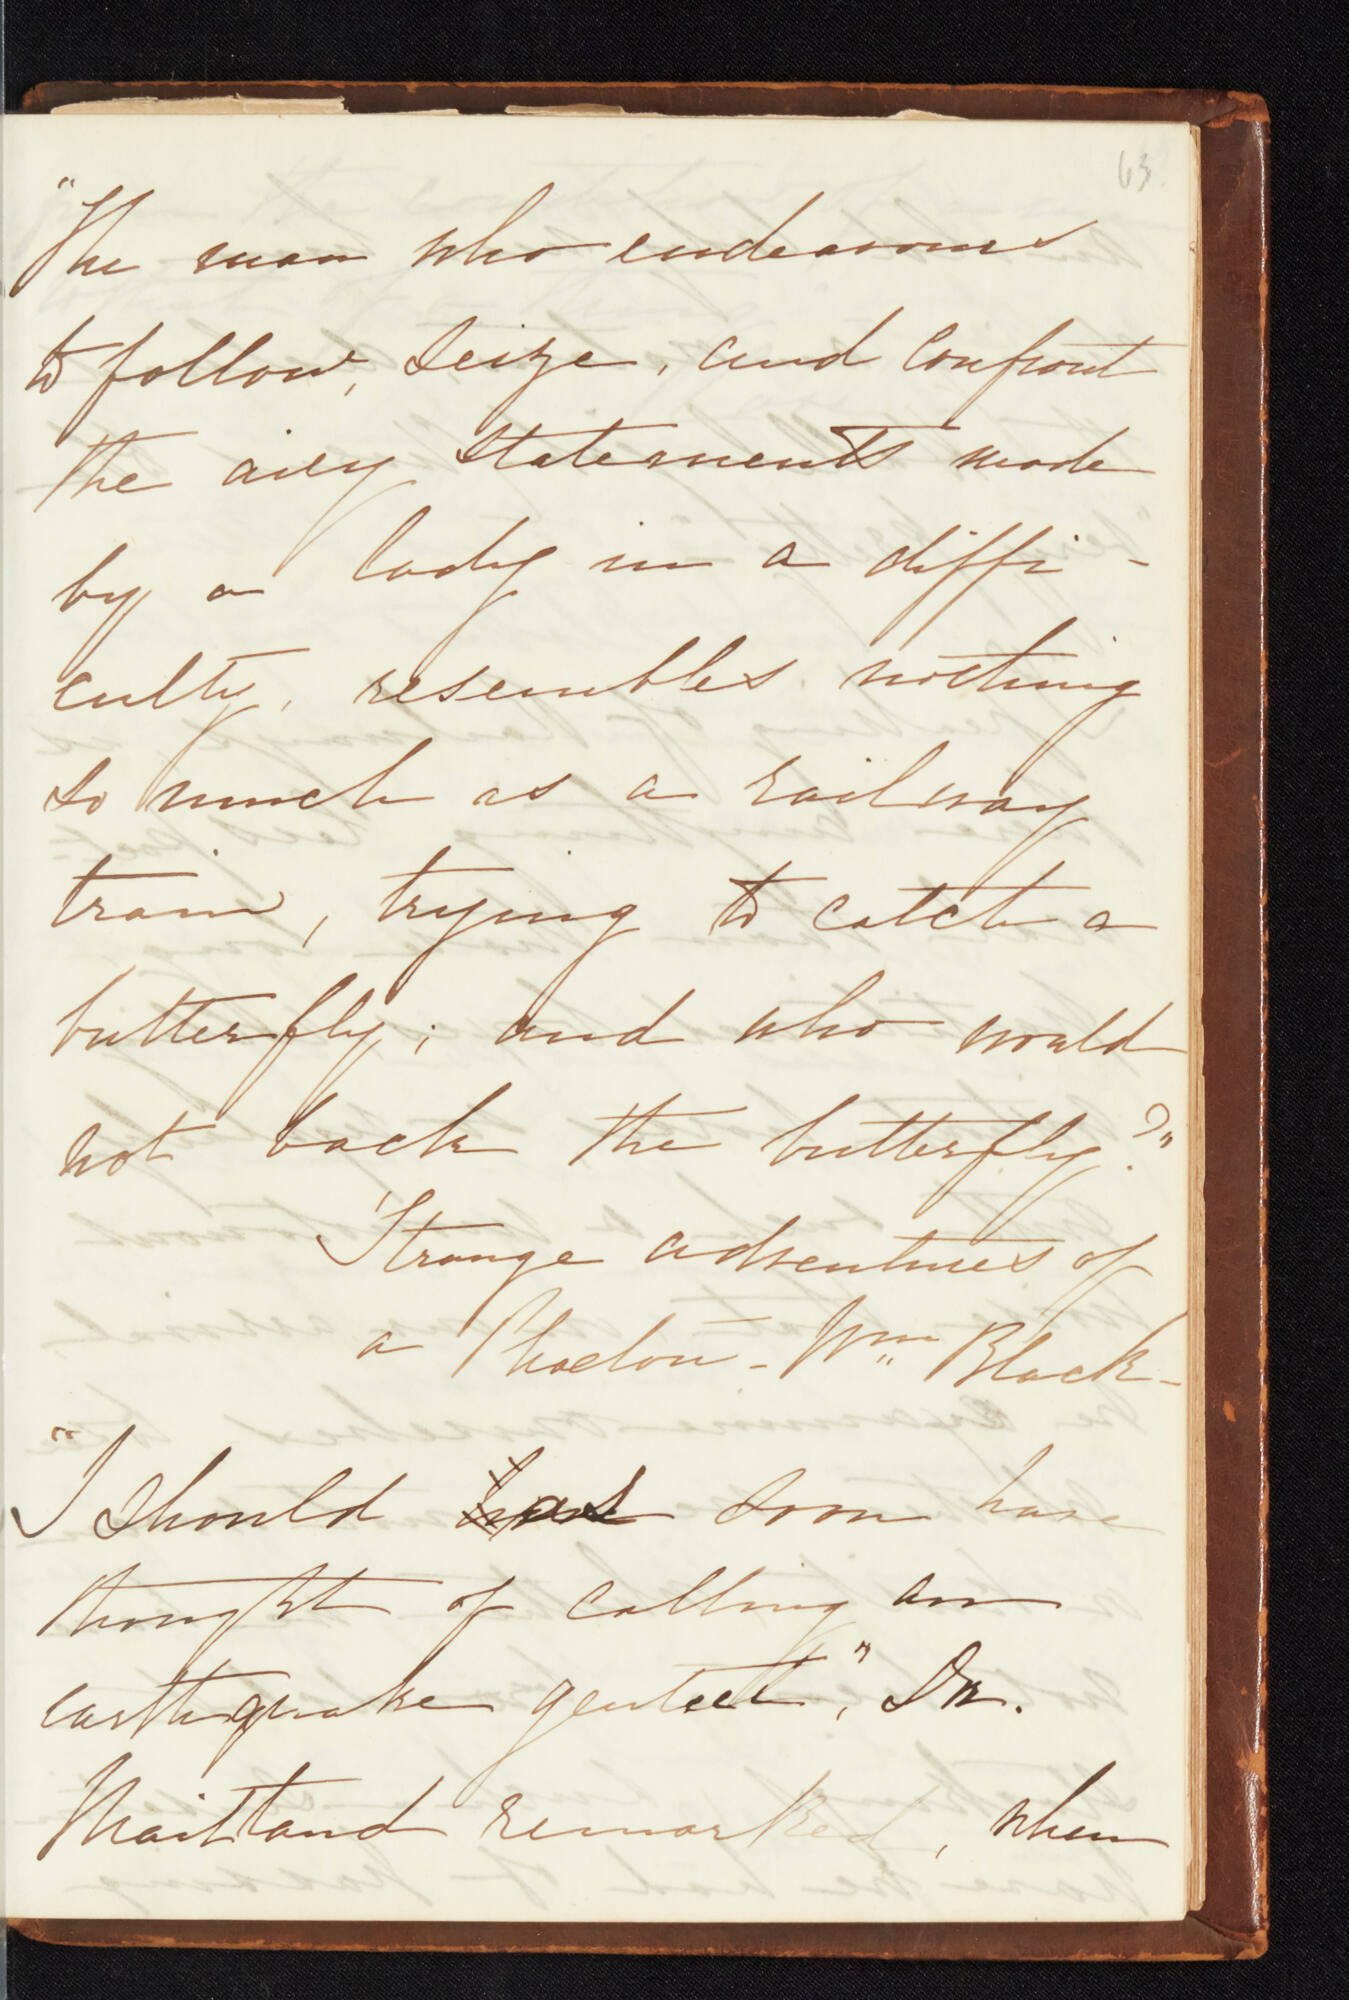 63
"The man who endeavours
to follow, seize, and confront
the airy statements made
by a lady in a diffi-
culty, resembles nothing
so much as a railway
train, trying to catch a
butterfly; and who would
not back the butterfly?"
Strange adventures of
a Phaeton - Wm Black -
"I should as soon have
thought of calling an
earthquake genteel", Dr.
Maitland remarked, when